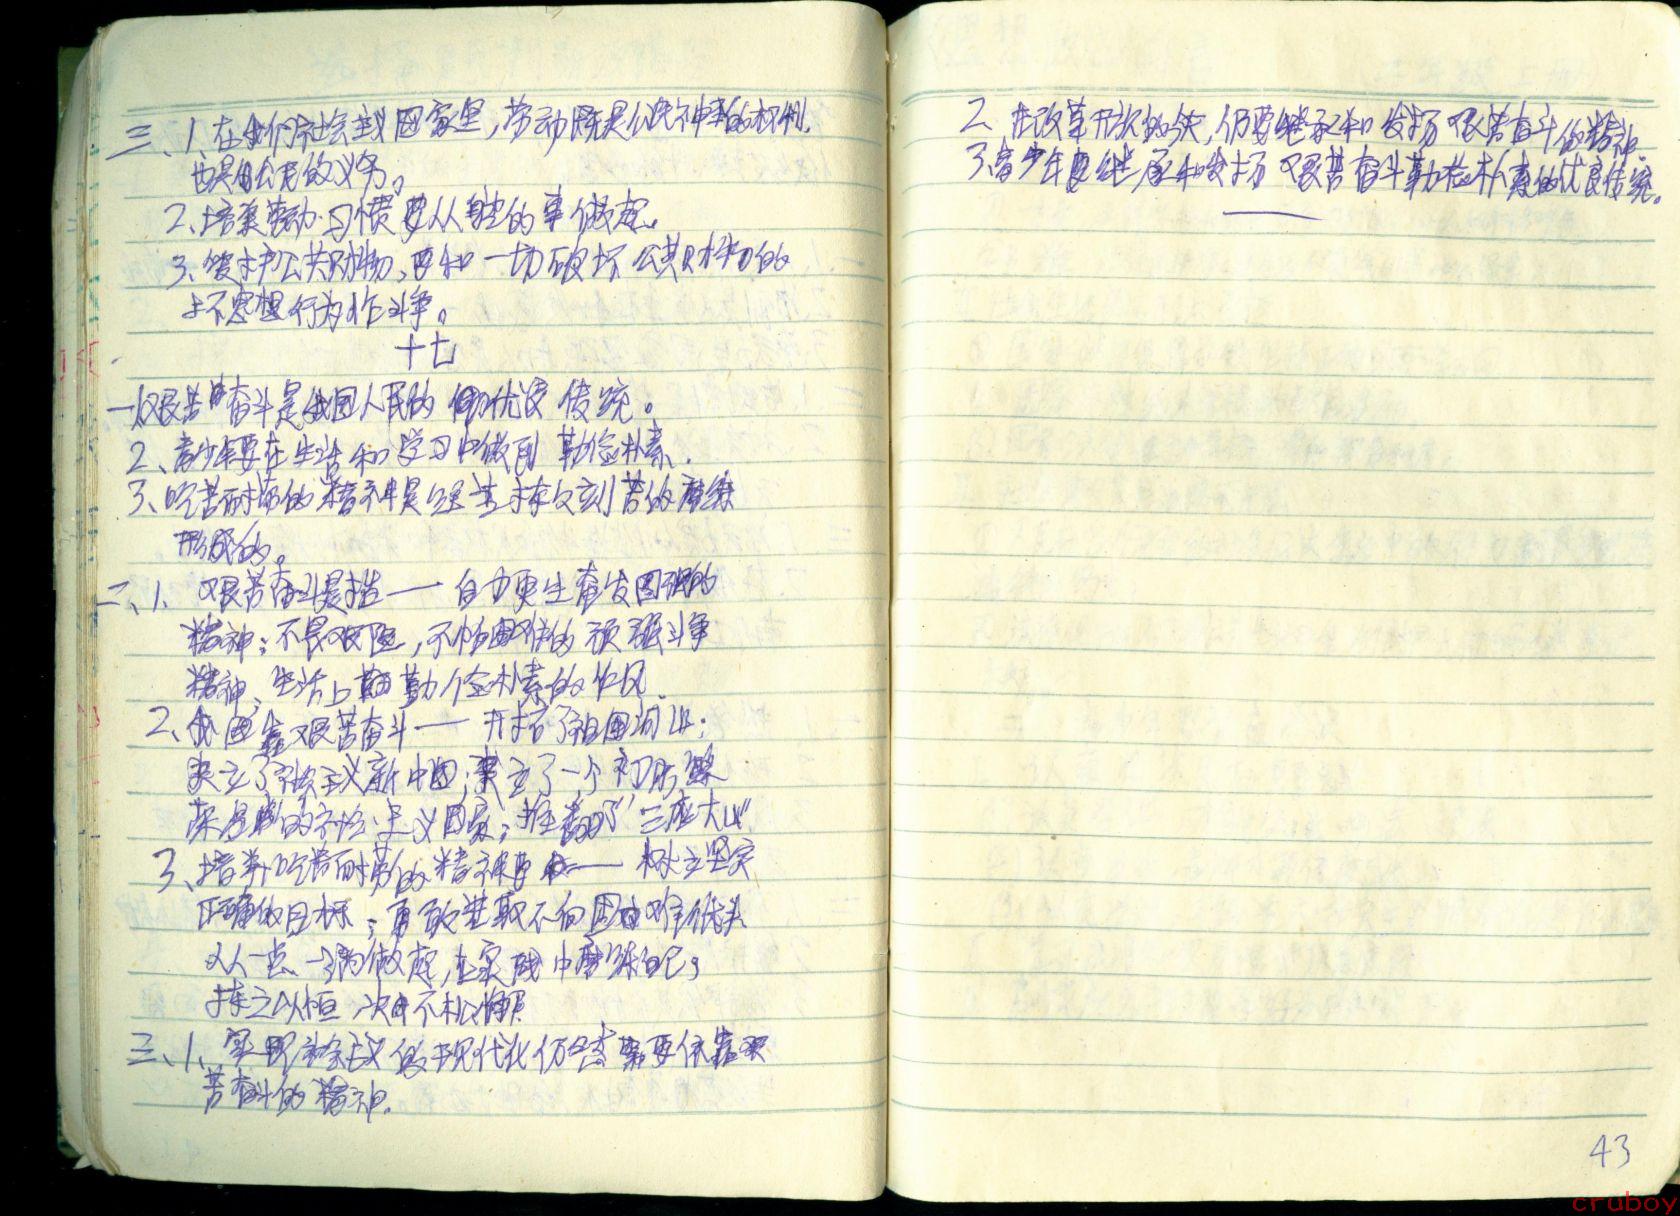 三、1、在我们社会主义国家里，劳动既是公民神圣的权利，
也是公民的义务。
2、培养劳动习惯要从身边的事做起。
3、爱护公共财物，要和一切破坏公共财物的
坏思想行为作斗争。
十七
一、艰苦奋斗是我国人民的优良传统。
2、青少年要在生活和学习中做到勤俭朴素。
3、吃苦耐劳的精神是经过持久刻苦的磨练
形成的。
二、1、艰苦奋斗是指——自力更生奋发图强的
精神；不畏艰险，不怕困难的顽强斗争
精神、生活上勤俭朴素的作风。
2、我国靠艰苦奋斗——开拓了祖国河山；
建立了社会主义新中国；建立了一个初步繁
荣昌盛的社会主义国家；推翻了“三座大山”
3、培养吃苦耐劳的精神要——树立坚定
正确的目标；勇敢进取不向困难低头
从一点一滴做起，在实践中磨练自己；
持之以恒 决不松懈
三、1、实现社会主义的现代化仍然需要依靠艰
苦奋斗的精神。
2、在改革开放的今天，仍要继承和发扬艰苦奋斗的精神。
3、青少年要继承和发扬艰苦奋斗勤俭朴素的优良传统。
43
cruboy